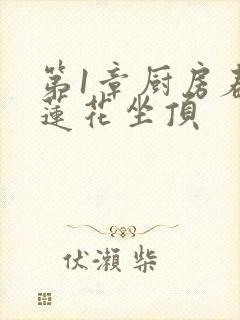 第1章厨房
蓮花坐頂
伏瀬柴